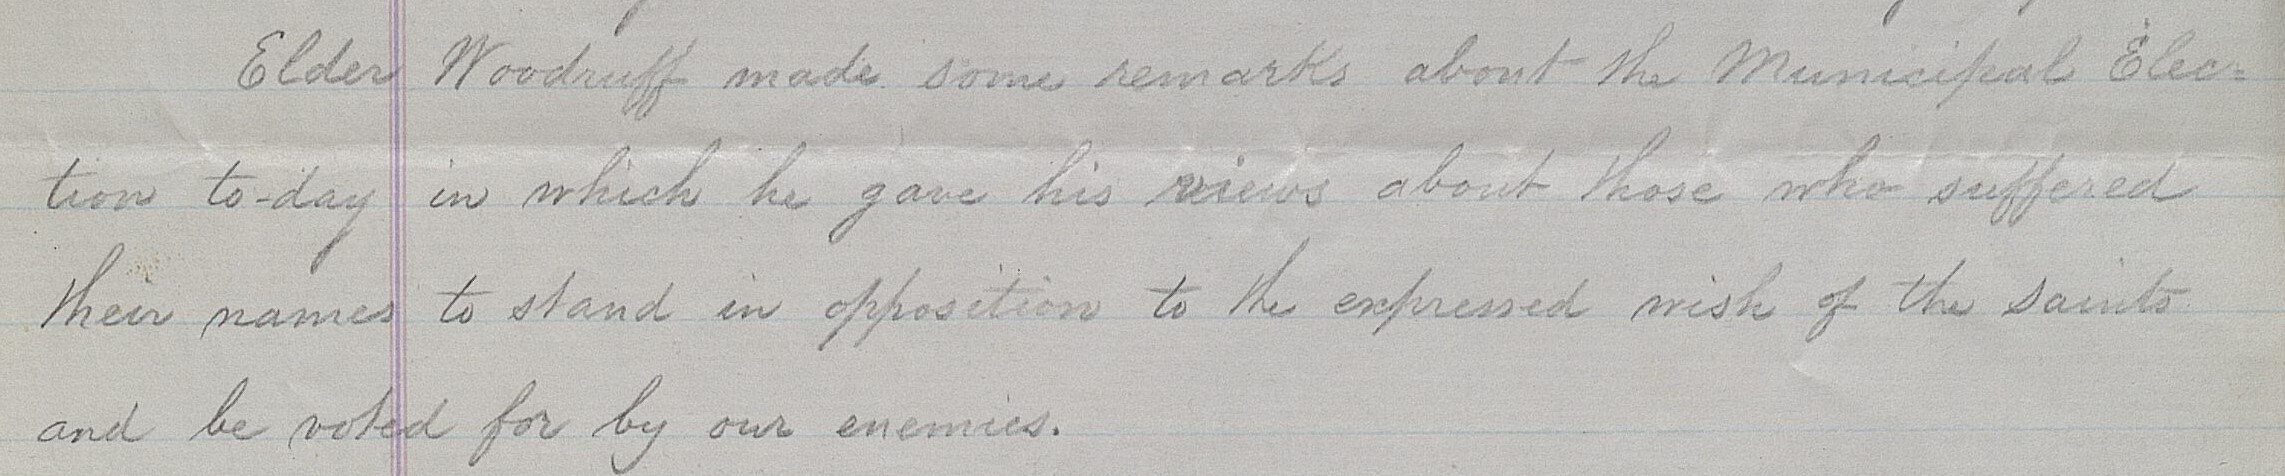 Elder Woodruff made some remarks about the Municipal Elec=
tion to-day in which he gave his views about those who suffered
their names to stand in opposition to the expressed wish of the saints
and be voted for by our enemies.